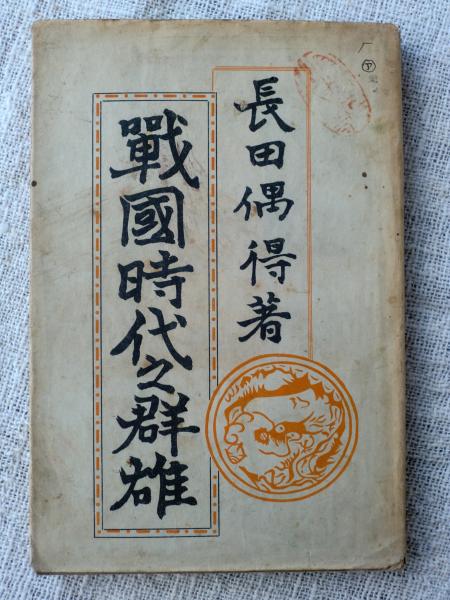 長田偶得著
戰國時代之群雄